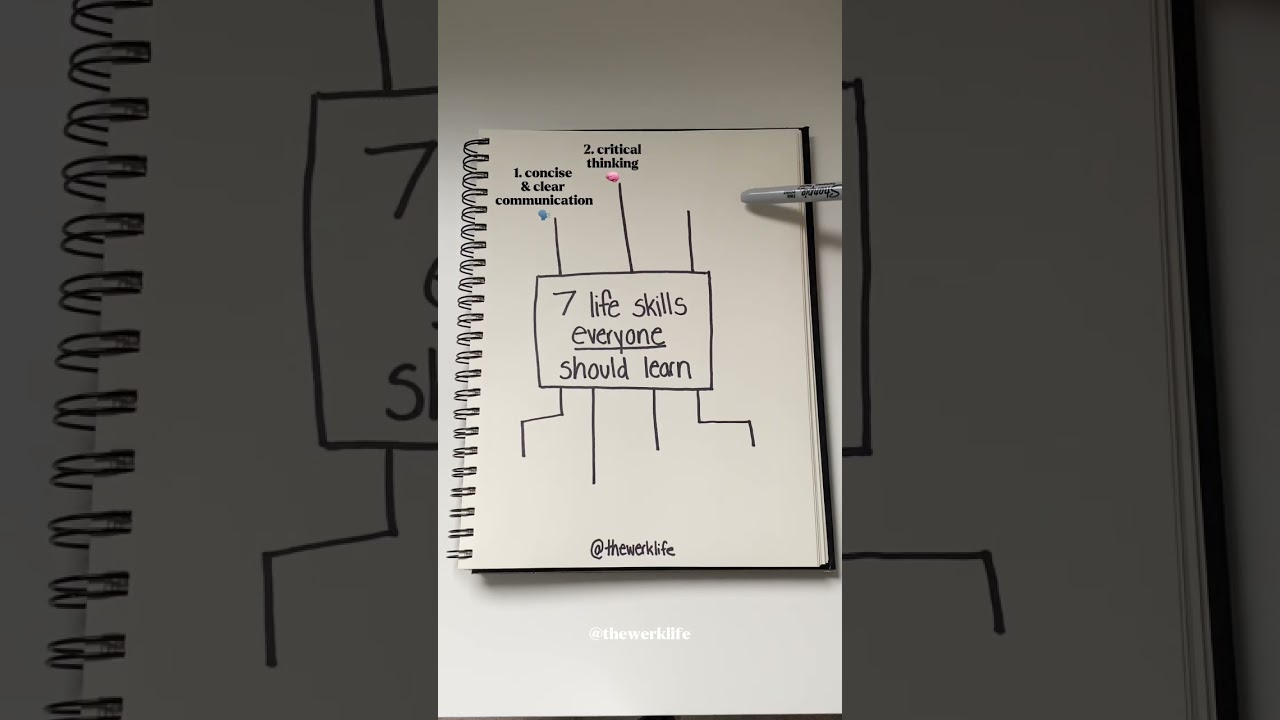 2. critical
thinking
1. concise
& clear
communication
Sharpie
7 life skills
everyone
should learn
@thewerklife
@thewerklife
7